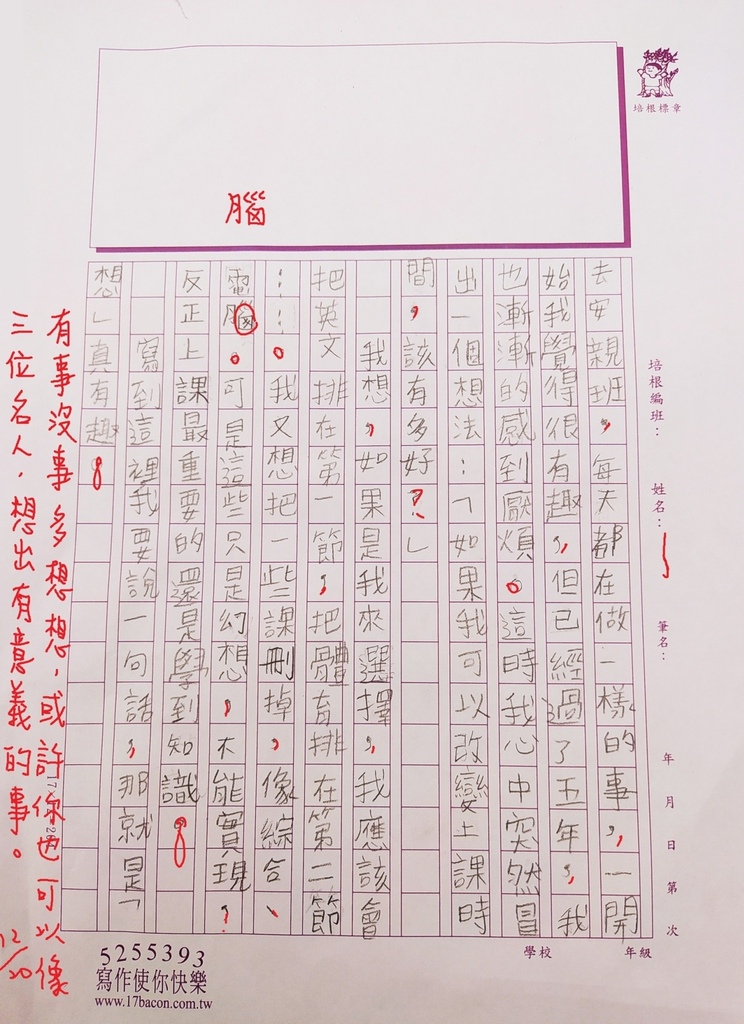 培根標章
腦
培根編班：
姓名：
筆名：
年 月 日 第 次
去安親班，每天都在做一樣的事，一開
始我覺得很有趣，但已經過了五年，我
也漸漸的感到厭煩。這時我心中突然冒
出一個想法：「如果我可以改變上課時
間，該有多好？」
我想，如果是我來選擇，我應該會
把英文排在第一節，把體育排在第二節
……。我又想把一些課刪掉，像綜合、
電腦。可是這些只是幻想，不能實現？
反正上課最重要的還是學到知識。
寫到這裡我要說一句話，那就是「
想」真有趣。
有事沒事多想想，或許你也可以像
三位名人，想出有意義的事。
12/20
學校
年級
5255393
寫作使你快樂
www.17bacon.com.tw